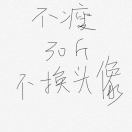 不瘦
30斤
不换头像